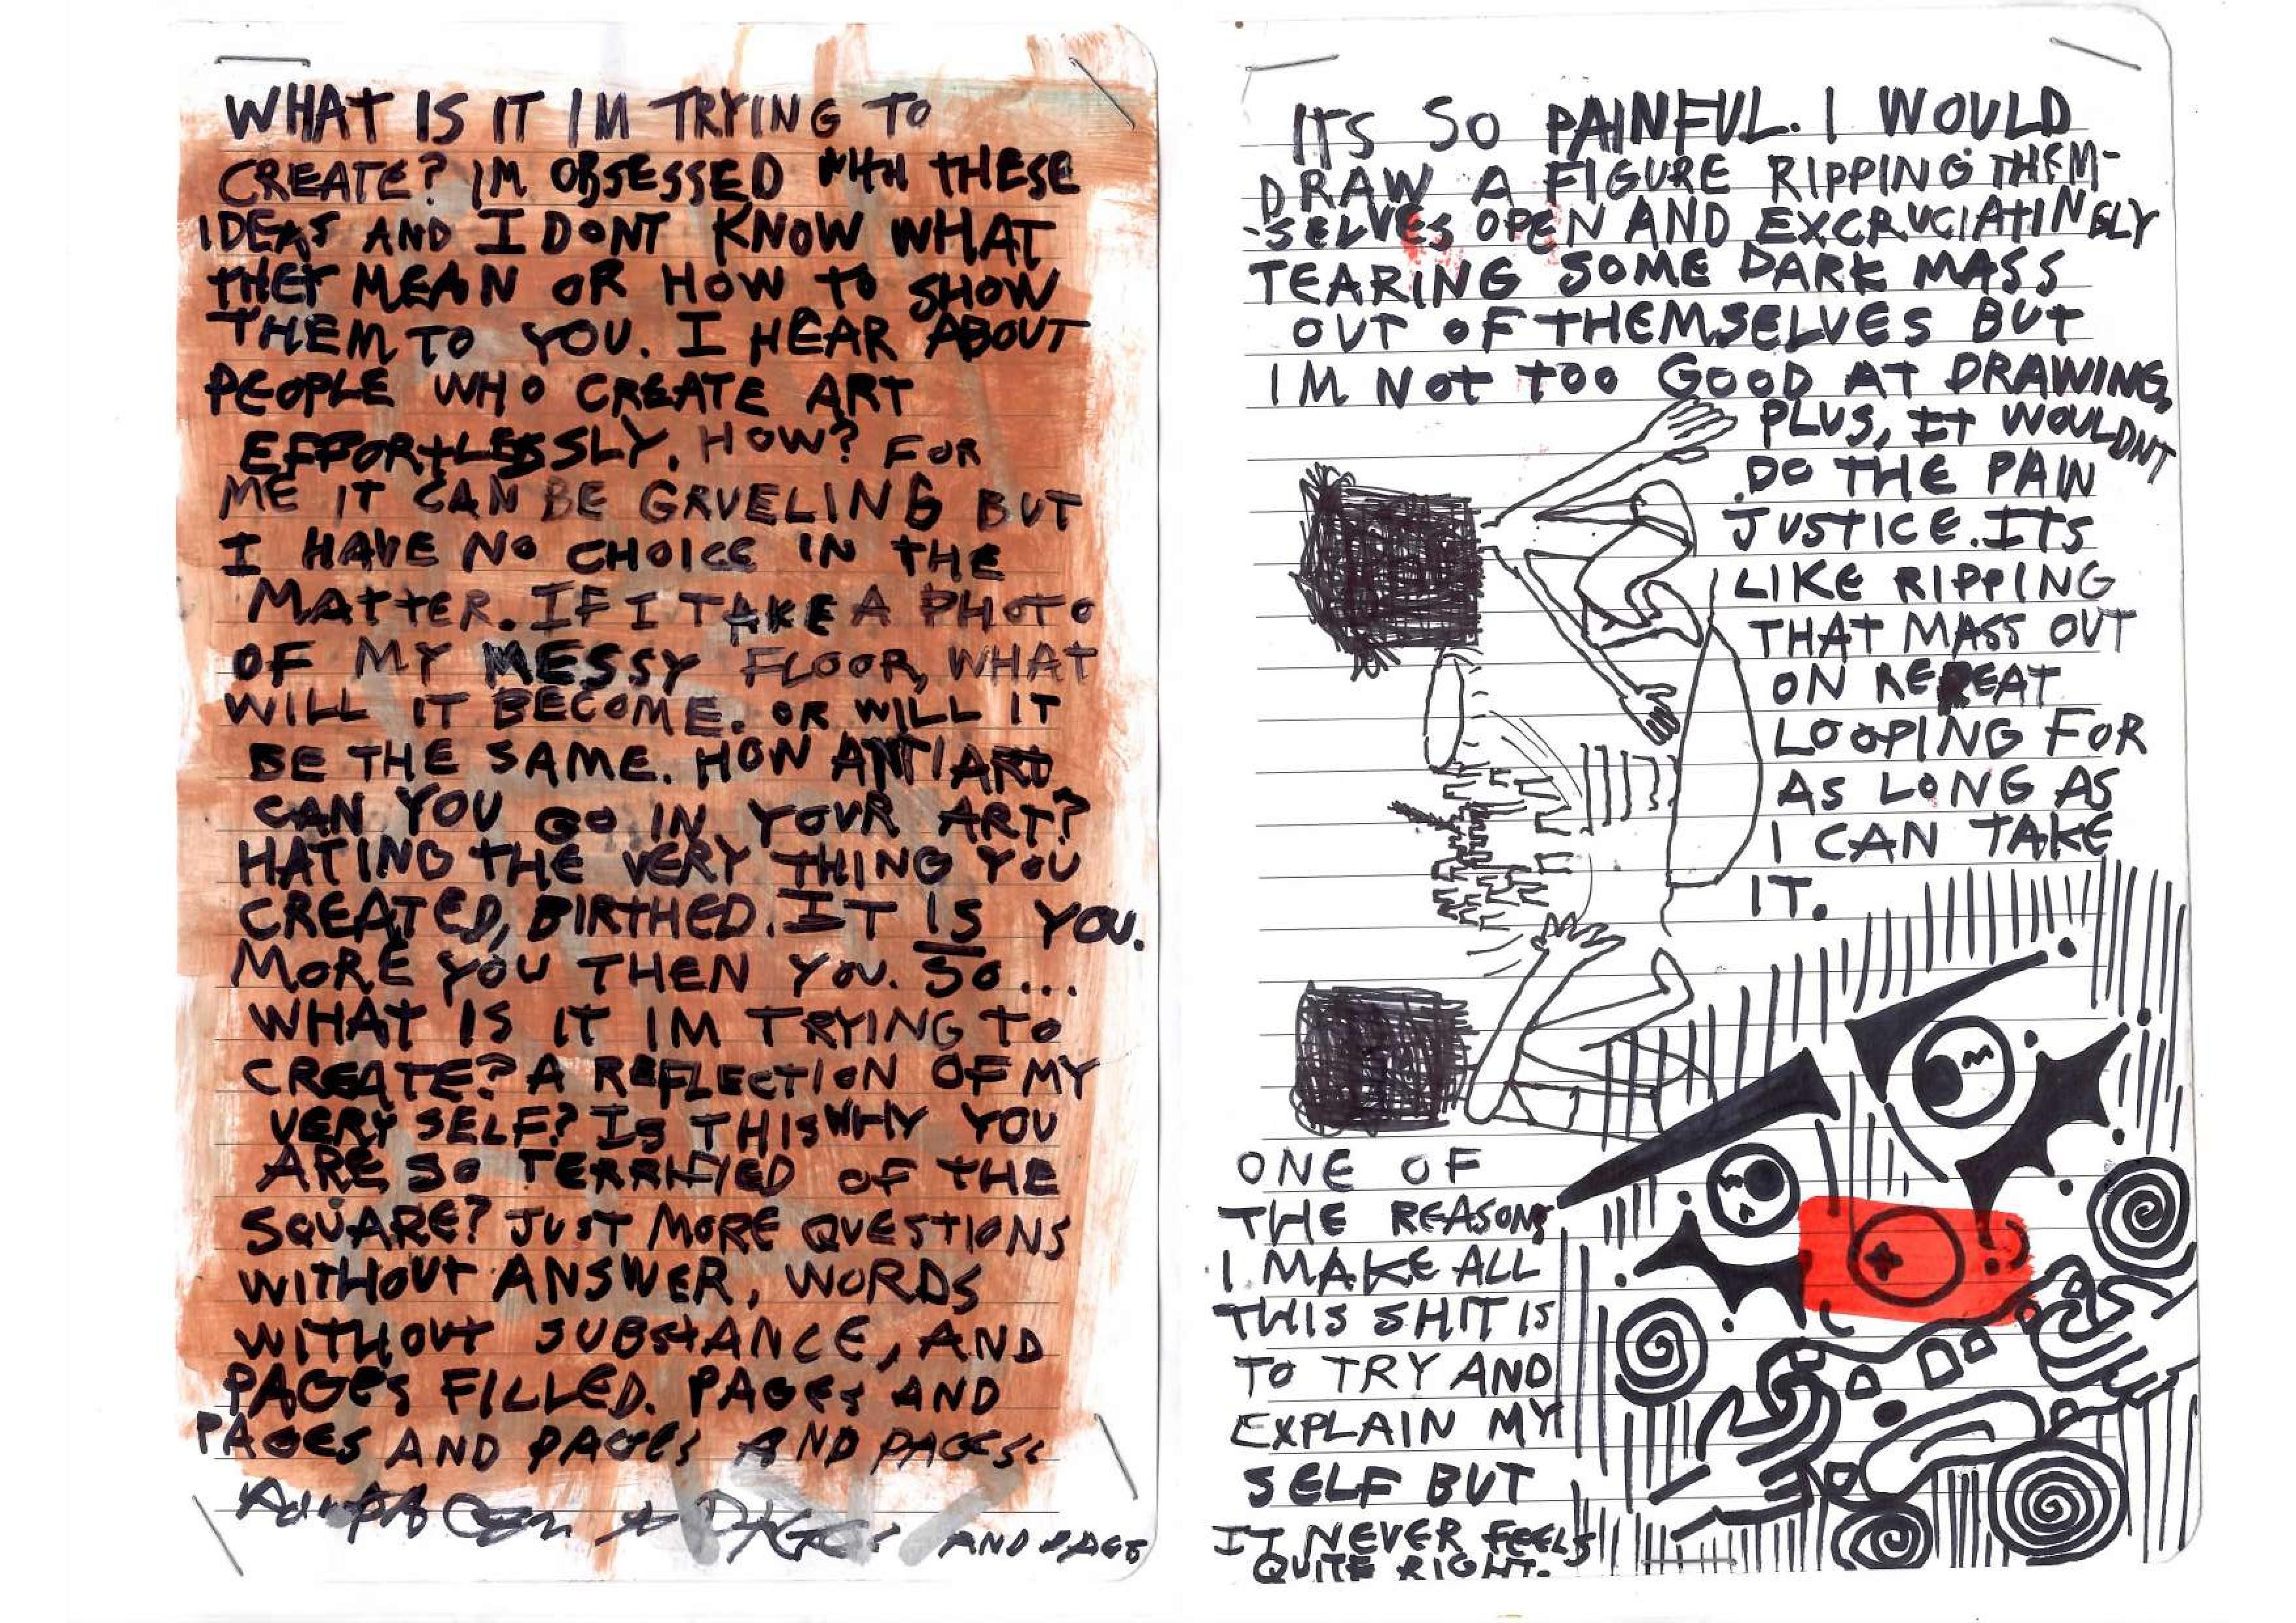 WHAT IS IT IM TRYING TO
CREATE? IM OBSESSED WITH THESE
IDEAS AND I DONT KNOW WHAT
THEY MEAN OR HOW TO SHOW
THEM TO YOU. I HEAR ABOUT
PEOPLE WHO CREATE ART
EFFORTLESSLY. HOW? FOR
ME IT CAN BE GRUELING BUT
I HAVE NO CHOICE IN THE
MATTER. IF I TAKE A PHOTO
OF MY MESSY FLOOR, WHAT
WILL IT BECOME. OR WILL IT
BE THE SAME. HOW ANTIART
CAN YOU GO IN YOUR ART?
HATING THE VERY THING YOU
CREATED, BIRTHED. IT IS YOU.
MORE YOU THEN YOU. SO...
WHAT IS IT IM TRYING TO
CREATE? A REFLECTION OF MY
VERY SELF? IS THIS WHY YOU
ARE SO TERRIFIED OF THE
SQUARE? JUST MORE QUESTIONS
WITHOUT ANSWER, WORDS
WITHOUT SUBSTANCE, AND
PAGES FILLED. PAGES AND
PAGES AND PAGES AND PAGES
AND PAGE
ITS SO PAINFUL. I WOULD
DRAW A FIGURE RIPPING THEM-
-SELVES OPEN AND EXCRUCIATINGLY
TEARING SOME DARK MASS
OUT OF THEMSELVES BUT
IM NOT TOO GOOD AT DRAWING,
PLUS, IT WOULDNT
DO THE PAIN
JUSTICE. ITS
LIKE RIPPING
THAT MASS OUT
ON REPEAT
LOOPING FOR
AS LONG AS
I CAN TAKE
IT.
ONE OF
THE REASONS
I MAKE ALL
THIS SHIT IS
TO TRY AND
EXPLAIN MY
SELF BUT
IT NEVER FEELS
QUITE RIGHT.